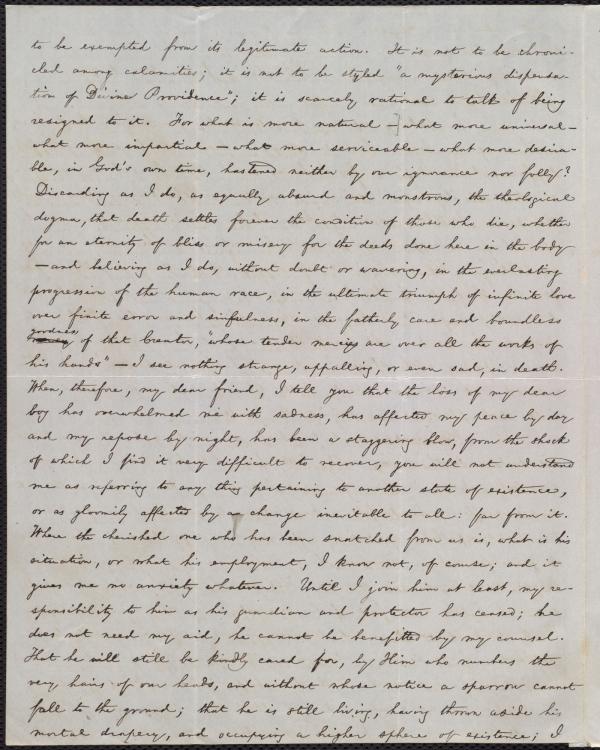 to be exempted from its legitimate action. It is not to be chroni-
cled among calamities; it is not to be styled "a mysterious dispensa-
tion of Divine Providence"; it is scarcely rational to talk of being
resigned to it. For what is more natural — what more universal —
what more impartial — what more serviceable — what more desira-
ble, in God's own time, hastened neither by our ignorance nor folly?
Discarding as I do, as equally absurd and monstrous, the theological
dogma, that death settles forever the condition of those who die, whether
for an eternity of bliss or misery for the deeds done here in the body
— and believing as I do, without doubt or wavering, in the everlasting
progression of the human race, in the ultimate triumph of infinite love
over finite error and sinfulness, in the fatherly care and boundless
goodness
of that Creator, "whose tender mercies are over all the works of
his hands" — I see nothing strange, appalling, or even sad, in death.
When, therefore, my dear friend, I tell you that the loss of my dear
boy has overwhelmed me with sadness, has affected my peace by day
and my repose by night, has been a staggering blow, from the shock
of which I find it very difficult to recover, you will not understand
me as referring to any thing pertaining to another state of existence,
or as gloomily affected by a change inevitable to all: far from it.
Where the cherished one who has been snatched from us is, what is his
situation, or what his employment, I know not, of course; and it
gives me no anxiety whatever. Until I join him at least, my re-
sponsibility to him as his guardian and protector has ceased; he
does not need my aid, he cannot be benefitted by my counsel.
That he will still be kindly cared for, by Him who numbers the
very hairs of our heads, and without whose notice a sparrow cannot
fall to the ground; that he is still living, having thrown aside his
mortal drapery, and occupying a higher sphere of existence; I